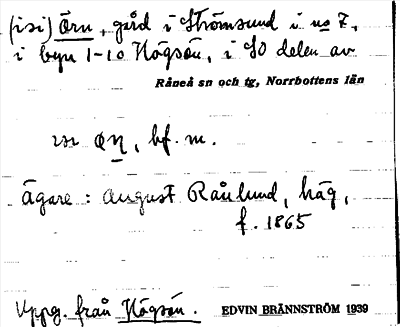 (isi) Örn, gård i Strömsund i no 7,
i byn 1-10 Högsön, i SO delen av
Råneå sn och tg, Norrbottens län
bf. m.
Ägare: August Rånlund, häg,
f. 1865
Uppg. från Högsön. EDVIN BRÄNNSTRÖM 1939